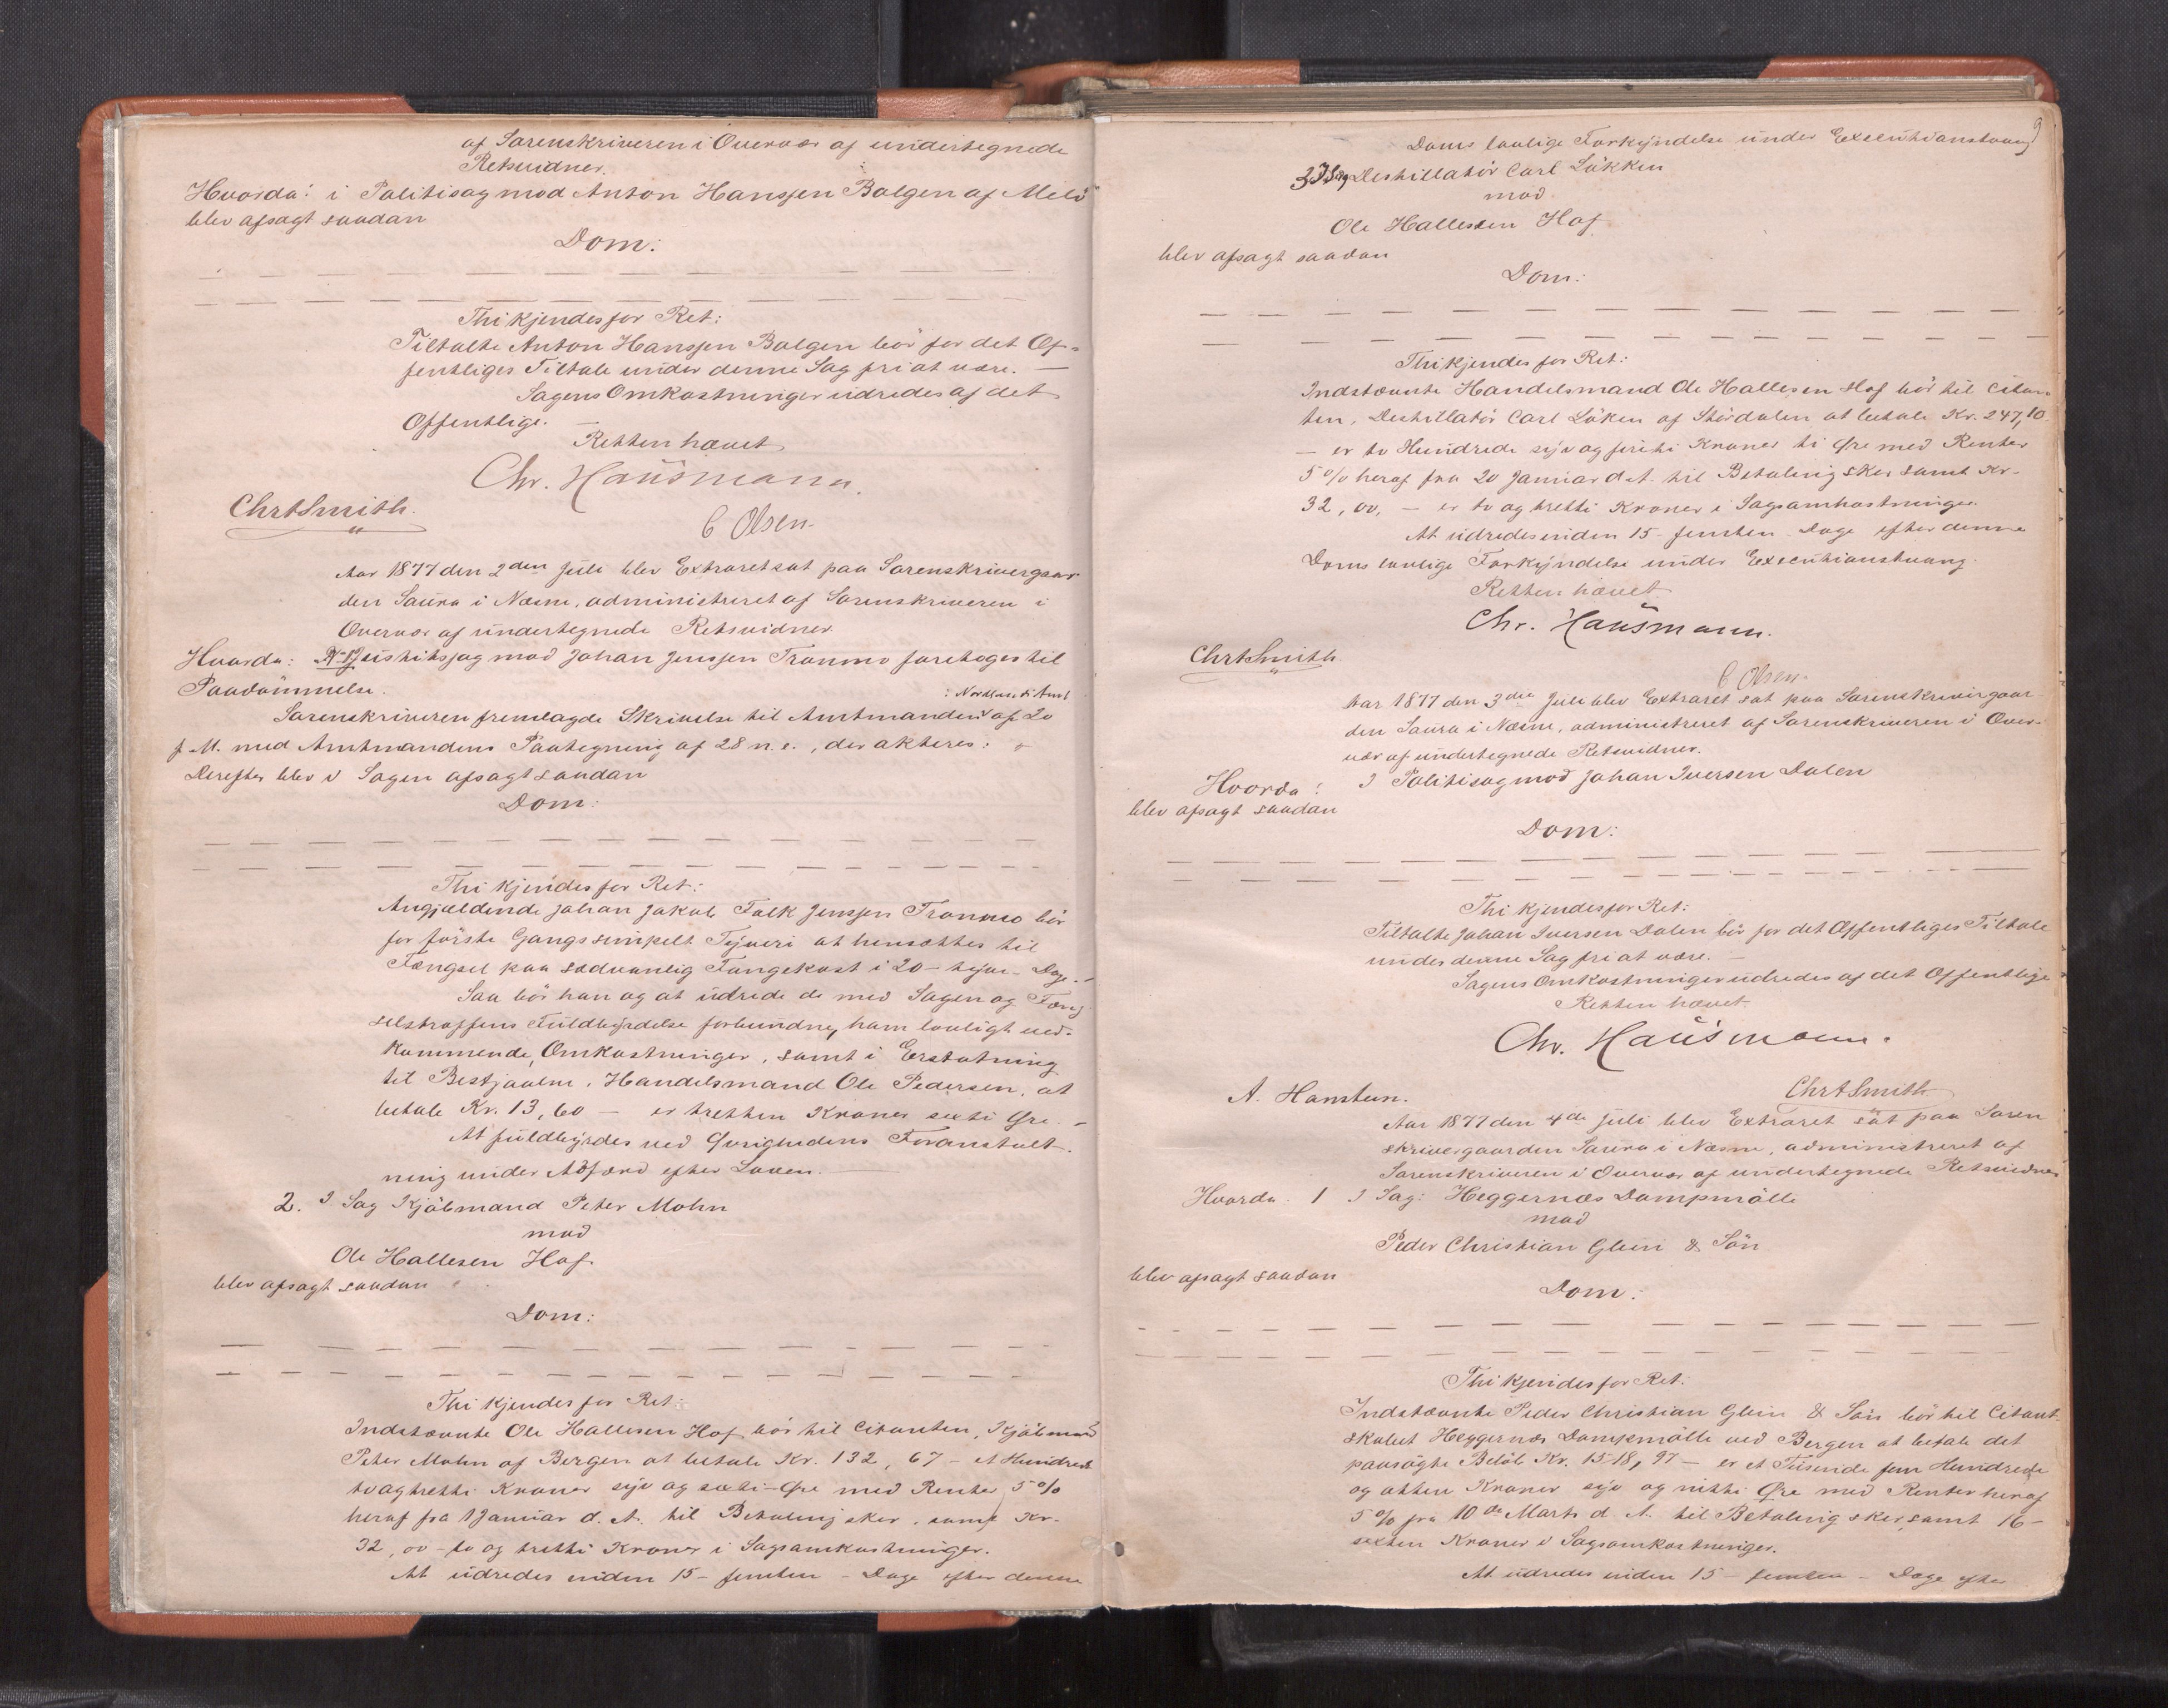 af Sorenskriveren i Overvær af undertegnede
Retsvidner.
Hvorda: i Politisag mod Anton Hanssen Bolgen af Melö
blev afsagt saadan
Dom:
Thi kjendes for Ret:
Tiltalte Anton Hanssen Bolgen bör for det Of-
fentliges Tiltale under denne Sag fri at være. —
Sagens Omkostninger udredes af det
Offentlige. —
Retten hævet
Chr. Hausmann.
Chrt Smith.
C Olsen.
Aar 1877 den 2den Juli blev Extraret sat paa Sorenskrivergaar
den Saura i Næsne, administreret af Sorenskriveren i
Overvær af undertegnede Retsvidner.
Hvorda: No 1 Justitssag mod Johan Jenssen Tronmo foretoges til
Paadömmelse.
i Nordlands Amt
Sorenskriveren fremlagde Skrivelse til Amtmanden af 20
f. M. med Amtmandens Paategning af 28 n. e., der akteres:
Derefter blev i Sagen afsagt saadan
Dom:
Thi kjendes for Ret:
Angjældende Johan Jakob Falk Jenssen Tronmo bör
for förste Gangs simpelt Tyveri at hensættes til
Fængsel paa sædvanlig Fangekost i 20 - tyve - Dage. -
Saa bör han og at udrede de med Sagen og Fæng
selstraffens Fuldbyrdelse forbundne, ham lovligt ved-
kommende, Omkostninger, samt i Erstatning
til Bestjaalne, Handelsmand Ole Pedersen, at
betale Kr. 13,60 — er tretten Kroner sexti Øre. -
At fuldbyrdes ved Øvrighedens Foranstalt-
ning under Adfærd efter Loven. —
2. I Sag Kjöbmand Peter Mohn
mod
Ole Hallesen Hof
blev afsagt saadan
Dom:
Thi kjendes for Ret:
Indstævnte Ole Hallesen Hof bör til Citanten, Kjöbmand
Peter Mohn af Bergen at betale Kr. 132,67 - et Hundrede
to og tretti Kroner syv og sexti - Øre med Renter 5 %
heraf fra 1 Januar d. A. til Betaling sker, samt Kr.
32,00 - to og tretti Kroner i Sagsomkostninger.
At udredes inden 15 - femten - Dage efter denne
9
Doms lovlige Forkyndelse under Executionstvang
3. I Sag Destillatör Carl Lökken
mod
Ole Hallesen Hof
blev afsagt saadan
Dom:
Thi kjendes for Ret:
Indstævnte Handelsmand Ole Hallesen Hof bör til Citan-
ten, Destillatör Carl Löken af Stördalen at betale Kr. 247,10
— er to Hundrede syv og firti Kroner ti Øre med Renter
5 % heraf fra 20 Januar d. A. til Betaling sker samt Kr.
32,00. - er to og tretti Kroner i Sagsomkostninger.
At udredes inden 15 - femten - Dage efter denne
Doms lovlige Forkyndelse under Executionstvang.
Retten hævet
Chr. Hausmann.
Chrt Smith
C Olsen.
Aar 1877 den 3die Juli blev Extraret sat paa Sorenskrivergaar-
den Saura i Næsne, administreret af Sorenskriveren i Over-
vær af undertegnede Retsvidner.
Hvorda: I Politisag mod Johan Iversen Dalen
blev afsagt saadan
Dom:
Thi kjendes for Ret:
Tiltalte Johan Iversen Dalen bör for det Offentliges Tiltale
under denne Sag fri at være. —
Sagens Omkostninger udredes af det Offentlige
Retten hævet.
Chr. Hausmann.
A. Hamstun.
Chrt Smith
Aar 1877 den 4de Juli blev Extraret sat paa Soren
skrivergaarden Saura i Næsne, administreret af
Sorenskriveren i Overvær af undertegnede Retsvidner
Hvorda. 1 I Sag: Heggernæs Dampmölle
mod
Peder Christian Glein & Sön
blev afsagt saadan
Dom:
Thi kjendes for Ret:
Indstævnte Peder Christian Glein & Sön bör til Citant-
skabet Heggernæs Dampmölle ved Bergen at betale det
paasögte Belöb Kr. 1518,97 — er et Tusinde fem Hundrede
og atten Kroner syv og nitti Øre med Renter heraf
5 % fra 10de Marts d. A. til Betaling sker, samt 16 -
sexten Kroner i Sagsomkostninger.
At udredes inden 15 - femten - Dage efter